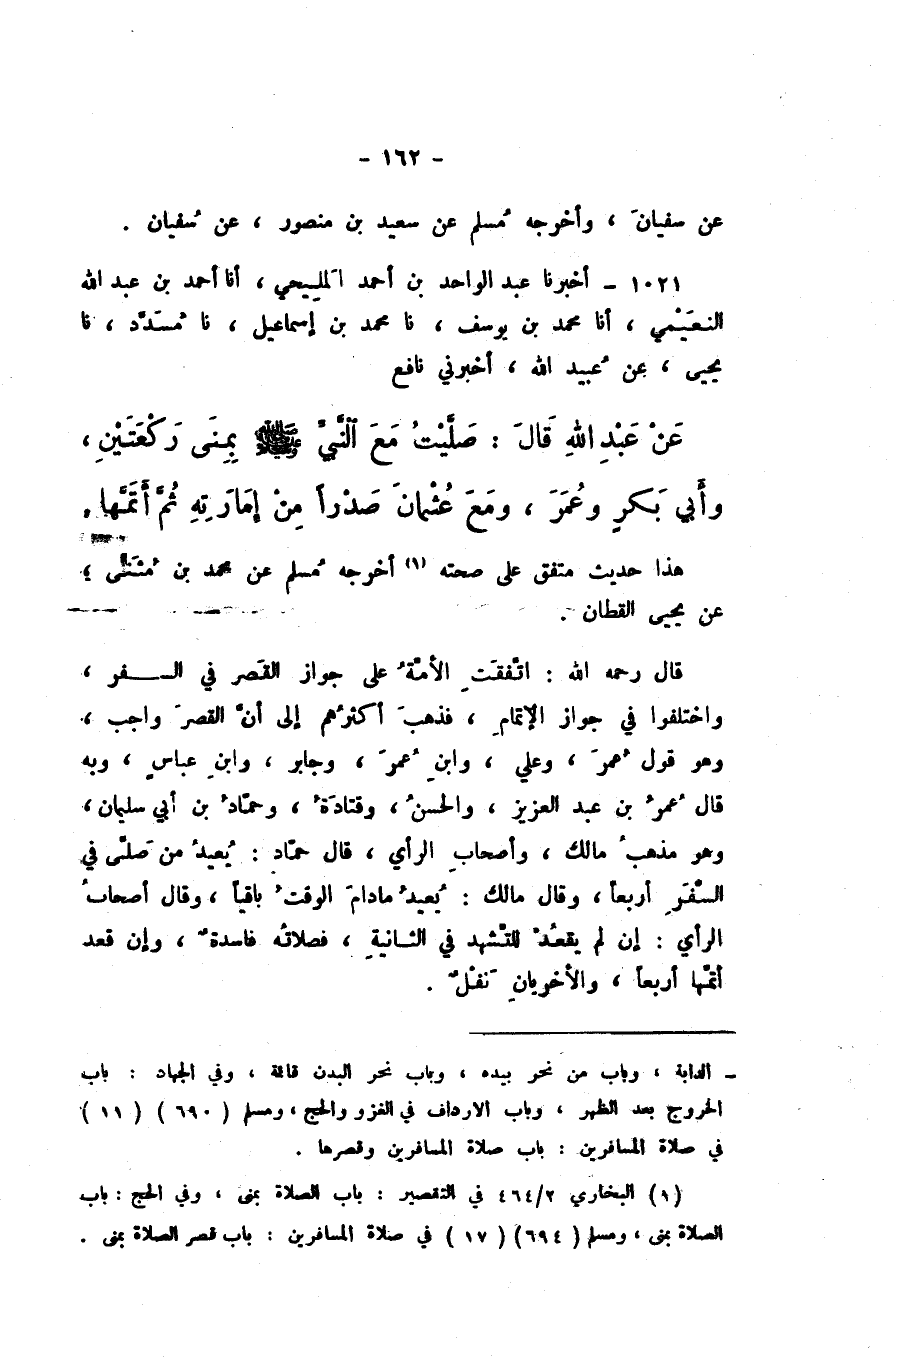 - ١٦٢ -
عن سفيانَ ، وأخرجه مُسلم عن سعيد بن منصور ، عن سُفيان .
١٠٢١ – أخبرنا عبد الواحد بن أحمد المَليحي ، أنا أحمد بن عبد الله
النعَيْمي ، أنا محمد بن يوسف ، نا محمد بن إسماعيل ، نا مُسَدَّد ، نا
يحيى ، عن عُبيد الله ، أخبرني نافع
عَنْ عَبْدِ اللهِ قَالَ : صَلَّيْتُ مَعَ النَّبِيِّ ﷺ بِمِنَى رَكْعَتَيْنِ ،
وأَبِي بَكرٍ وعُمَرَ ، ومَعَ عُثْمانَ صَدْراً مِنْ إِمَارَتِهِ ثُمَّ أَتَمَّها .
هذا حديث متفق على صحته (١) أخرجه مُسلم عن محمد بن مُثَنَّى ؛
عن يحيى القطان .
قال رحمه الله : اتَّفقَت الأمّةُ على جواز القَصر في الســفر ،
واختلفوا في جواز الإتمامِ ، فذهبَ أكثرُهم إلى أنَّ القصرَ واجب ،
وهو قول عُمرَ ، وعلي ، وابنِ عُمرَ ، وجابر ، وابنِ عباسٍ ، وبه
قال عُمرُ بن عبد العزيز ، والحسنُ ، وقتادَةُ ، وحمّادُ بن أبي سليمان ،
وهو مذهبُ مالك ، وأصحابِ الرأي ، قال حمّاد : يُعيدُ من صَلَّى في
السَّفَرِ أربعاً ، وقال مالك : يُعيدُ مادامَ الوقتُ باقياً ، وقال أصحابُ
الرأي : إن لم يقعُدْ للتّشهد في الثـانيةِ ، فصلاتُه فاسدةٌ ، وإن قعد
أتمّها أربعاً ، والأخريانِ نَفْلٌ .
– الدابة ، وباب من نحر بيده ، وباب نحر البدن قائمة ، وفي الجهاد : باب
الخروج بعد الظهر ، وباب الارداف في الغزو والحج ، ومسلم ( ٦٩٠ ) ( ١١ )
في صلاة المسافرين : باب صلاة المسافرين وقصرها .
(١) البخاري ٤٦٤/٢ في التقصير : باب الصلاة بمنى ، وفي الحج : باب
الصلاة بمنى ، ومسلم ( ٦٩٤ ) ( ١٧ ) في صلاة المسافرين : باب قصر الصلاة بمنى .